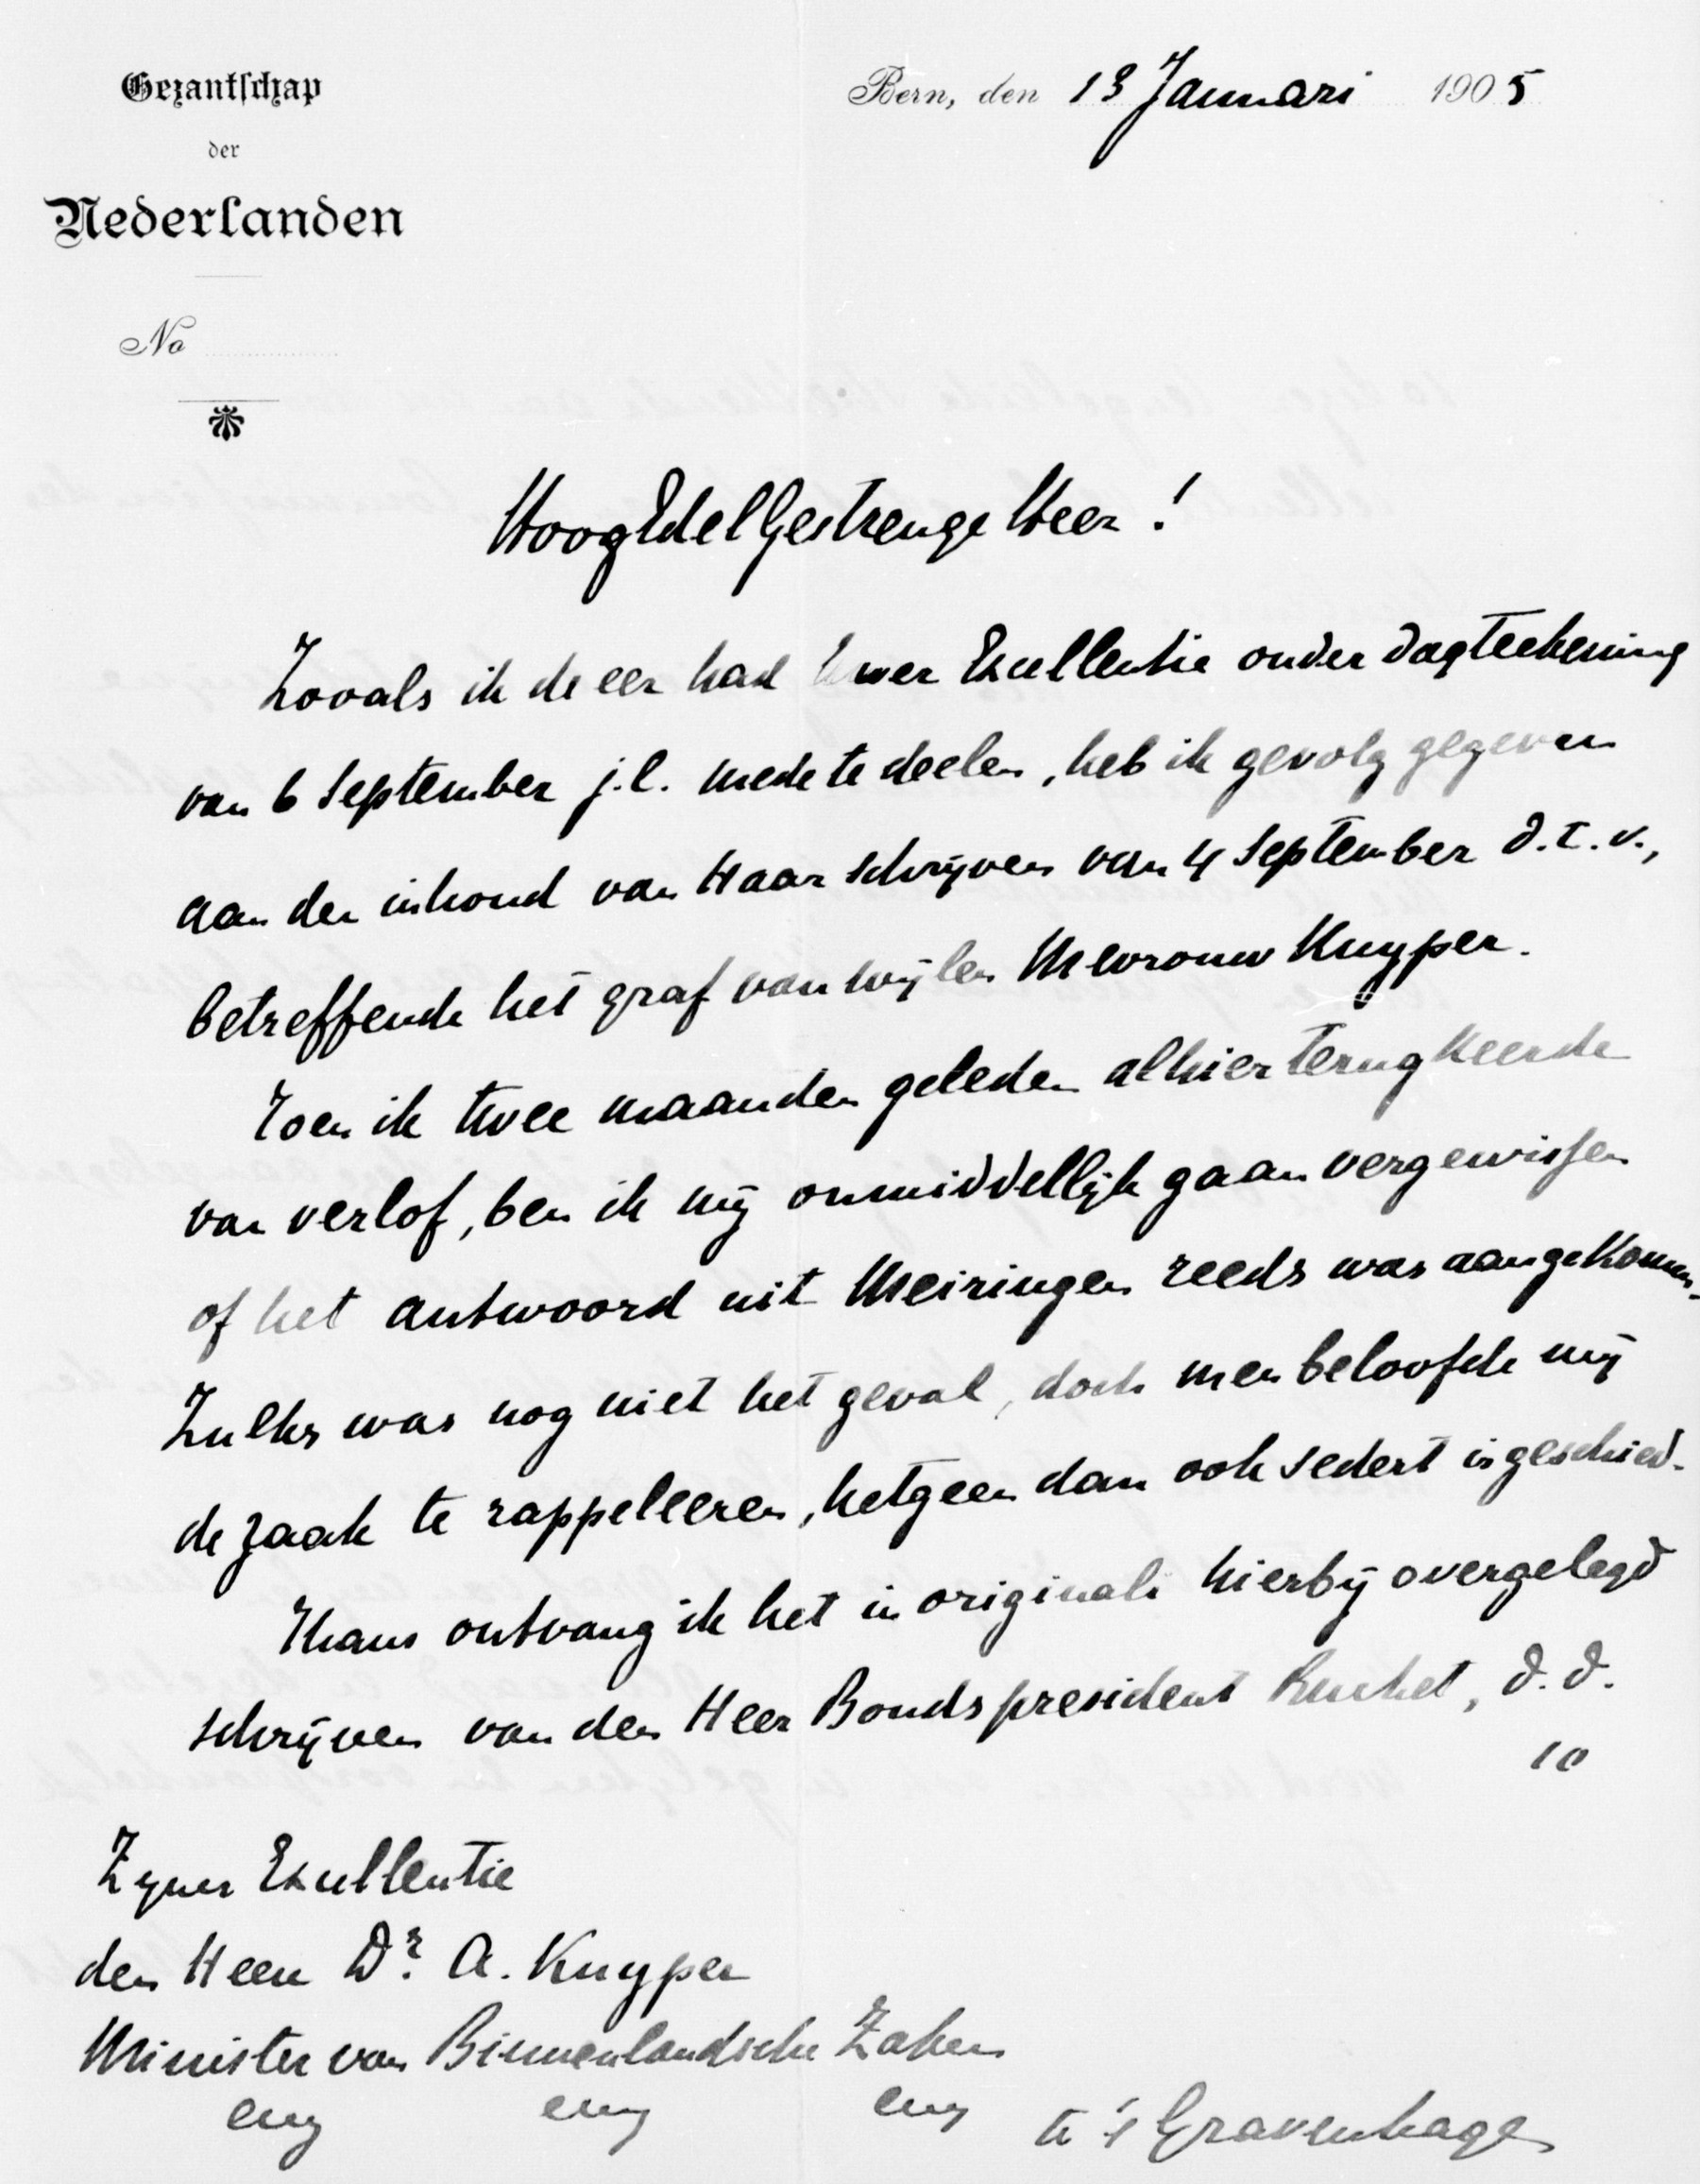 Gezantschap
der
Nederlanden
No
Bern, den 13 Januari 1905
HoogEdelGestrenge Heer!
Zooals ik de eer had Uwer Excellentie onder dagteekening
van 6 September j.l. mede te deelen, heb ik gevolg gegeven
aan den inhoud van Haar schrijven van 4 September d.t.v.,
betreffende het graf van wijlen Mevrouw Kuyper.
Toen ik twee maanden geleden alhier terugkeerde
van verlof, ben ik mij onmiddellijk gaan vergewissen
of het antwoord uit Meiringen reeds was aangekomen.
Zulks was nog niet het geval, doch men beloofde mij
de zaak te rappeleeren, hetgeen dan ook sedert is geschied.
Thans ontvang ik het in originali hierbij overgelegd
schrijven van den Heer Bondspresident Ruchet, d.d.
10
Zyner Excellentie
den Heere Dr. A. Kuyper
Minister van Binnenlandsche Zaken
enz enz enz
te 's Gravenhage